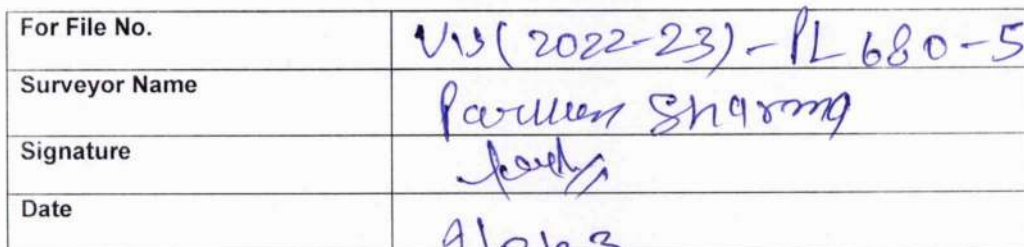 For File No. VIS(2022-23)-PL680-5
Surveyor Name Parveen Sharma
Signature
Date